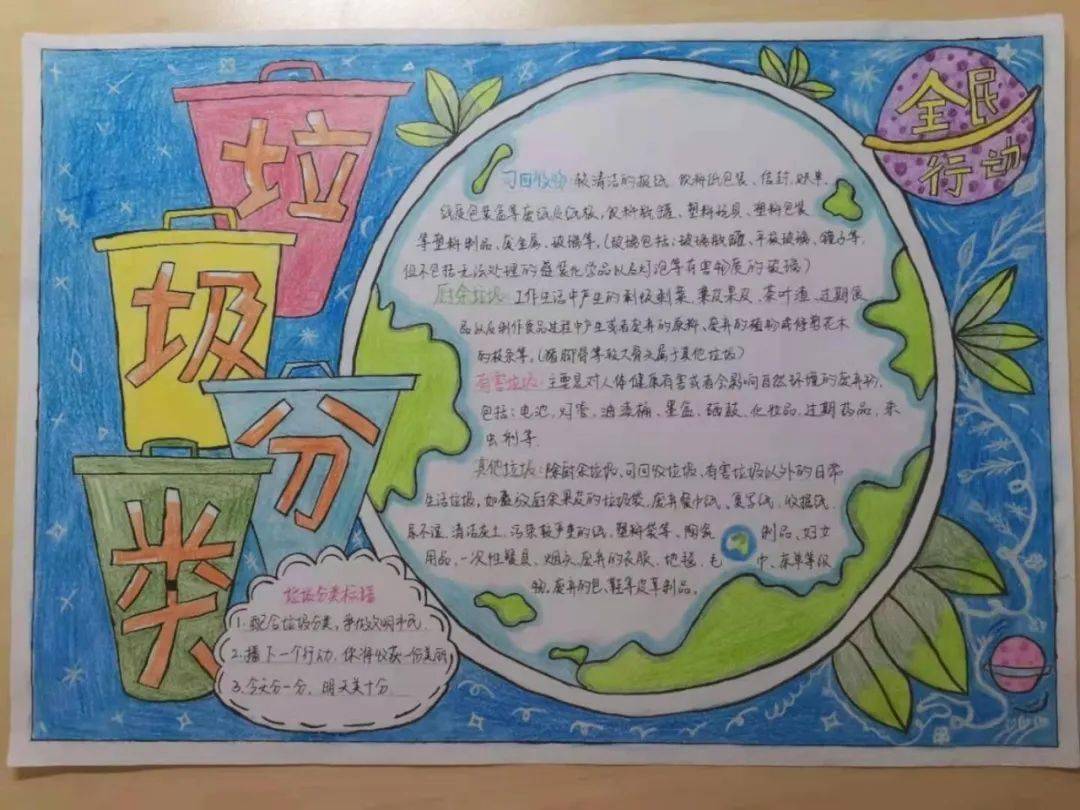 垃
圾
分
类
全民
行动
可回收物:较清洁的报纸、饮料纸包装、信封、
纸质包装盒等废纸及纸板,饮料瓶罐、塑料玩具、塑料包装
等塑料制品、废金属、玻璃等。(玻璃包括:玻璃瓶罐、平板玻璃、镜子等,
但不包括无法处理的盛装化学品以及灯泡等有害物质的玻璃)
厨余垃圾:工作生活中产生的剩饭剩菜、果皮、茶叶渣、过期食
品以及制作食品过程中产生或者废弃的原料、废弃的植物或修剪花木
的枝条等。(猪脚骨等较大骨头属于其他垃圾)
有害垃圾:主要是对人体健康有害或者会影响自然环境的废弃物,
包括:电池、灯管、油漆桶、墨盒、硒鼓、化妆品、过期药品、杀
虫剂等.
其他垃圾:除厨余垃圾、可回收垃圾、有害垃圾以外的日常
生活垃圾,如盛放厨余果皮的垃圾袋、废弃餐巾纸、复写纸、收据纸、
尿不湿、清洁灰土、污染较严重的纸、塑料袋等、陶瓷制品、妇女
用品、一次性餐具、烟头、废弃的衣服、地毯、毛巾、床单等织
物、废弃的包、鞋等皮革制品。
垃圾分类标语
1.配合垃圾分类,争做文明市民.
2.播下一个行动,你将收获一份美丽
3.今天分一分,明天美十分